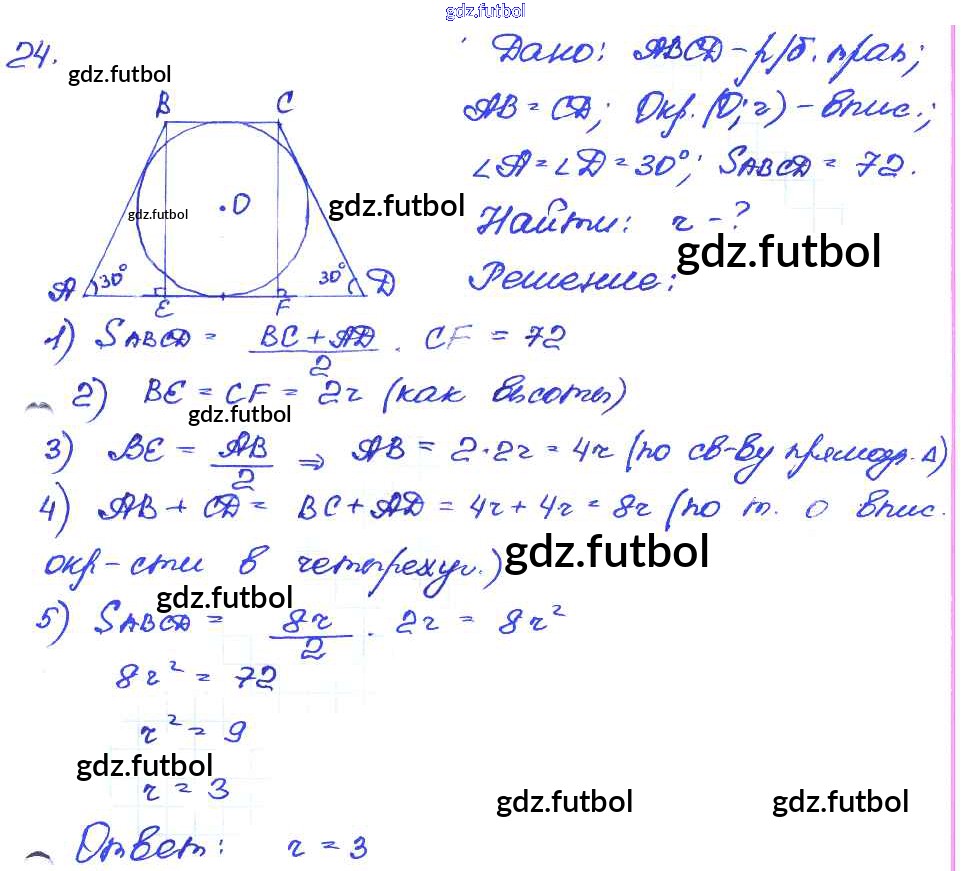 gdz.futbol
24.
gdz.futbol
Дано: ABCD - р/б. трап;
AB = CD; Окр. (O; r) - впис.;
∠A = ∠D = 30°; SABCD = 72.
Найти: r - ?
gdz.futbol
Решение:
B C
O
gdz.futbol
gdz.futbol
A 30° 30° D
E F
1) SABCD = (BC + AD)/2 · CF = 72
2) BE = CF = 2r (как высоты)
gdz.futbol
3) BE = AB/2 ⇒ AB = 2·2r = 4r (по св-ву прямоуг. Δ)
4) AB + CD = BC + AD = 4r + 4r = 8r (по т. о впис.
окр-сти в четырехуг.)
gdz.futbol
gdz.futbol
5) SABCD = 8r/2 · 2r = 8r²
8r² = 72
r² = 9
gdz.futbol
r = 3
gdz.futbol gdz.futbol
Ответ: r = 3